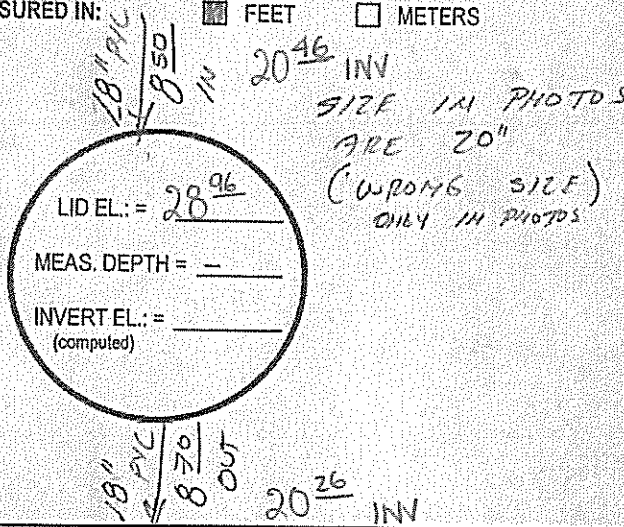 SURED IN: FEET METERS
18" PVC
8 50
IN
20 46 INV
SIZE IN PHOTOS
ARE 20"
(WRONG SIZE)
ONLY IN PHOTOS
LID EL.: = 28 96
MEAS. DEPTH = –
INVERT EL.: =
(computed)
18" PVC
8 70
OUT
20 26 INV